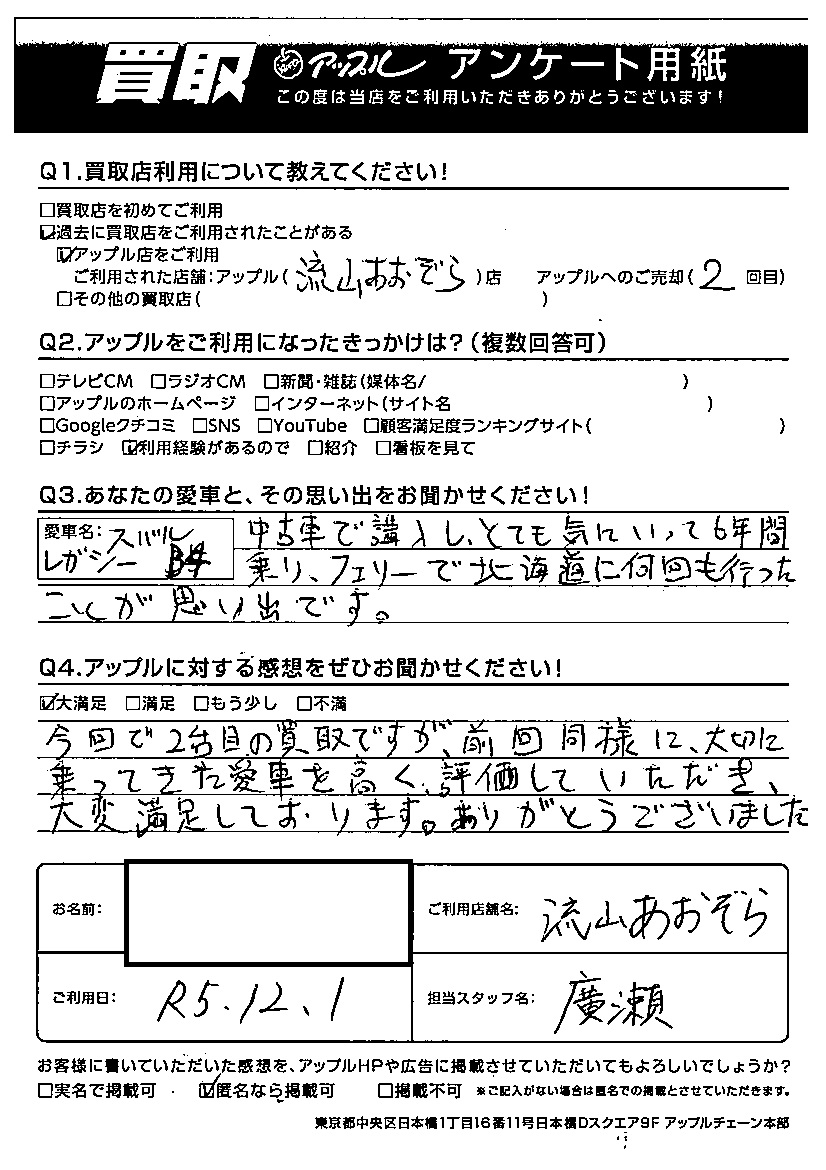 買取 アップル アンケート用紙
この度は当店をご利用いただきありがとうございます!
Q1.買取店利用について教えてください!
□買取店を初めてご利用
☑過去に買取店をご利用されたことがある
☑アップル店をご利用
ご利用された店舗:アップル(流山あおぞら)店 アップルへのご売却(2 回目)
□その他の買取店( )
Q2.アップルをご利用になったきっかけは?(複数回答可)
□テレビCM □ラジオCM □新聞・雑誌(媒体名/ )
□アップルのホームページ □インターネット(サイト名 )
□Googleクチコミ □SNS □YouTube □顧客満足度ランキングサイト( )
□チラシ ☑利用経験があるので □紹介 □看板を見て
Q3.あなたの愛車と、その思い出をお聞かせください!
愛車名:スバル
レガシー B4
中古車で講入し、とても気にいって6年間
乗り、フェリーで北海道に何回も行った
ことが思い出です。
Q4.アップルに対する感想をぜひお聞かせください!
☑大満足 □満足 □もう少し □不満
今回で2台目の買取ですが、前回同様に、大切に
乗ってきた愛車を高く評価していただき、
大変満足しております。ありがとうございました
お名前: ご利用店舗名: 流山あおぞら
ご利用日: R5.12.1 担当スタッフ名: 廣瀬
お客様に書いていただいた感想を、アップルHPや広告に掲載させていただいてもよろしいでしょうか?
□実名で掲載可 ☑匿名なら掲載可 □掲載不可 ※ご記入がない場合は匿名での掲載とさせていただきます。
東京都中央区日本橋1丁目16番11号日本橋Dスクエア9F アップルチェーン本部